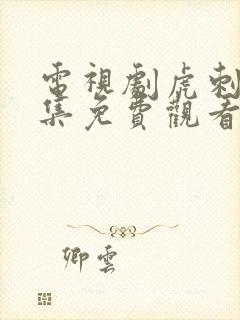 電視劇虎刺
集免費觀看
卿雲